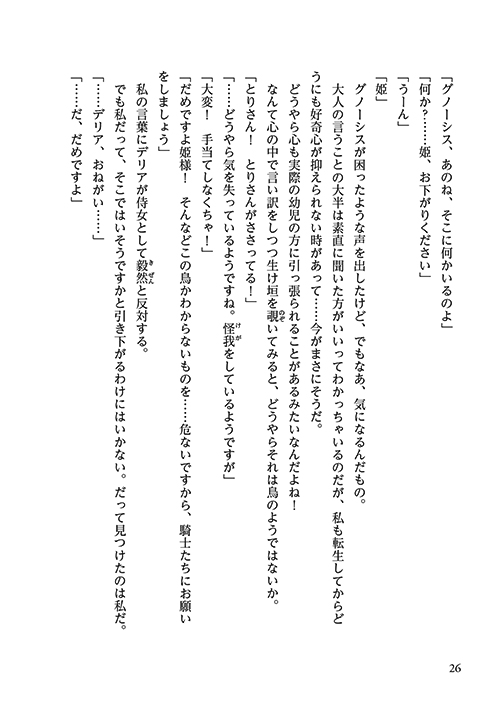 「グノーシス、あのね、そこに何かいるのよ」
「何か？……姫、お下がりください」
「うーん」
「姫」
　グノーシスが困ったような声を出したけど、でもなあ、気になるんだもの。
　大人の言うことの大半は素直に聞いた方がいいってわかっちゃいるのだが、私も転生してからど
うにも好奇心が抑えられない時があって……今がまさにそうだ。
　どうやら心も実際の幼児の方に引っ張られることがあるみたいなんだよね！
　なんて心の中で言い訳をしつつ生け垣を覗のぞいてみると、どうやらそれは鳥のようではないか。
「とりさん！　とりさんがささってる！」
「……どうやら気を失っているようですね。怪我けがをしているようですが」
「大変！　手当てしなくちゃ！」
「だめですよ姫様！　そんなどこの鳥かわからないものを……危ないですから、騎士たちにお願い
をしましょう」
　私の言葉にデリアが侍女として毅然きぜんと反対する。
　でも私だって、そこではいそうですかと引き下がるわけにはいかない。だって見つけたのは私だ。
「……デリア、おねがい……」
「……だ、だめですよ」
26